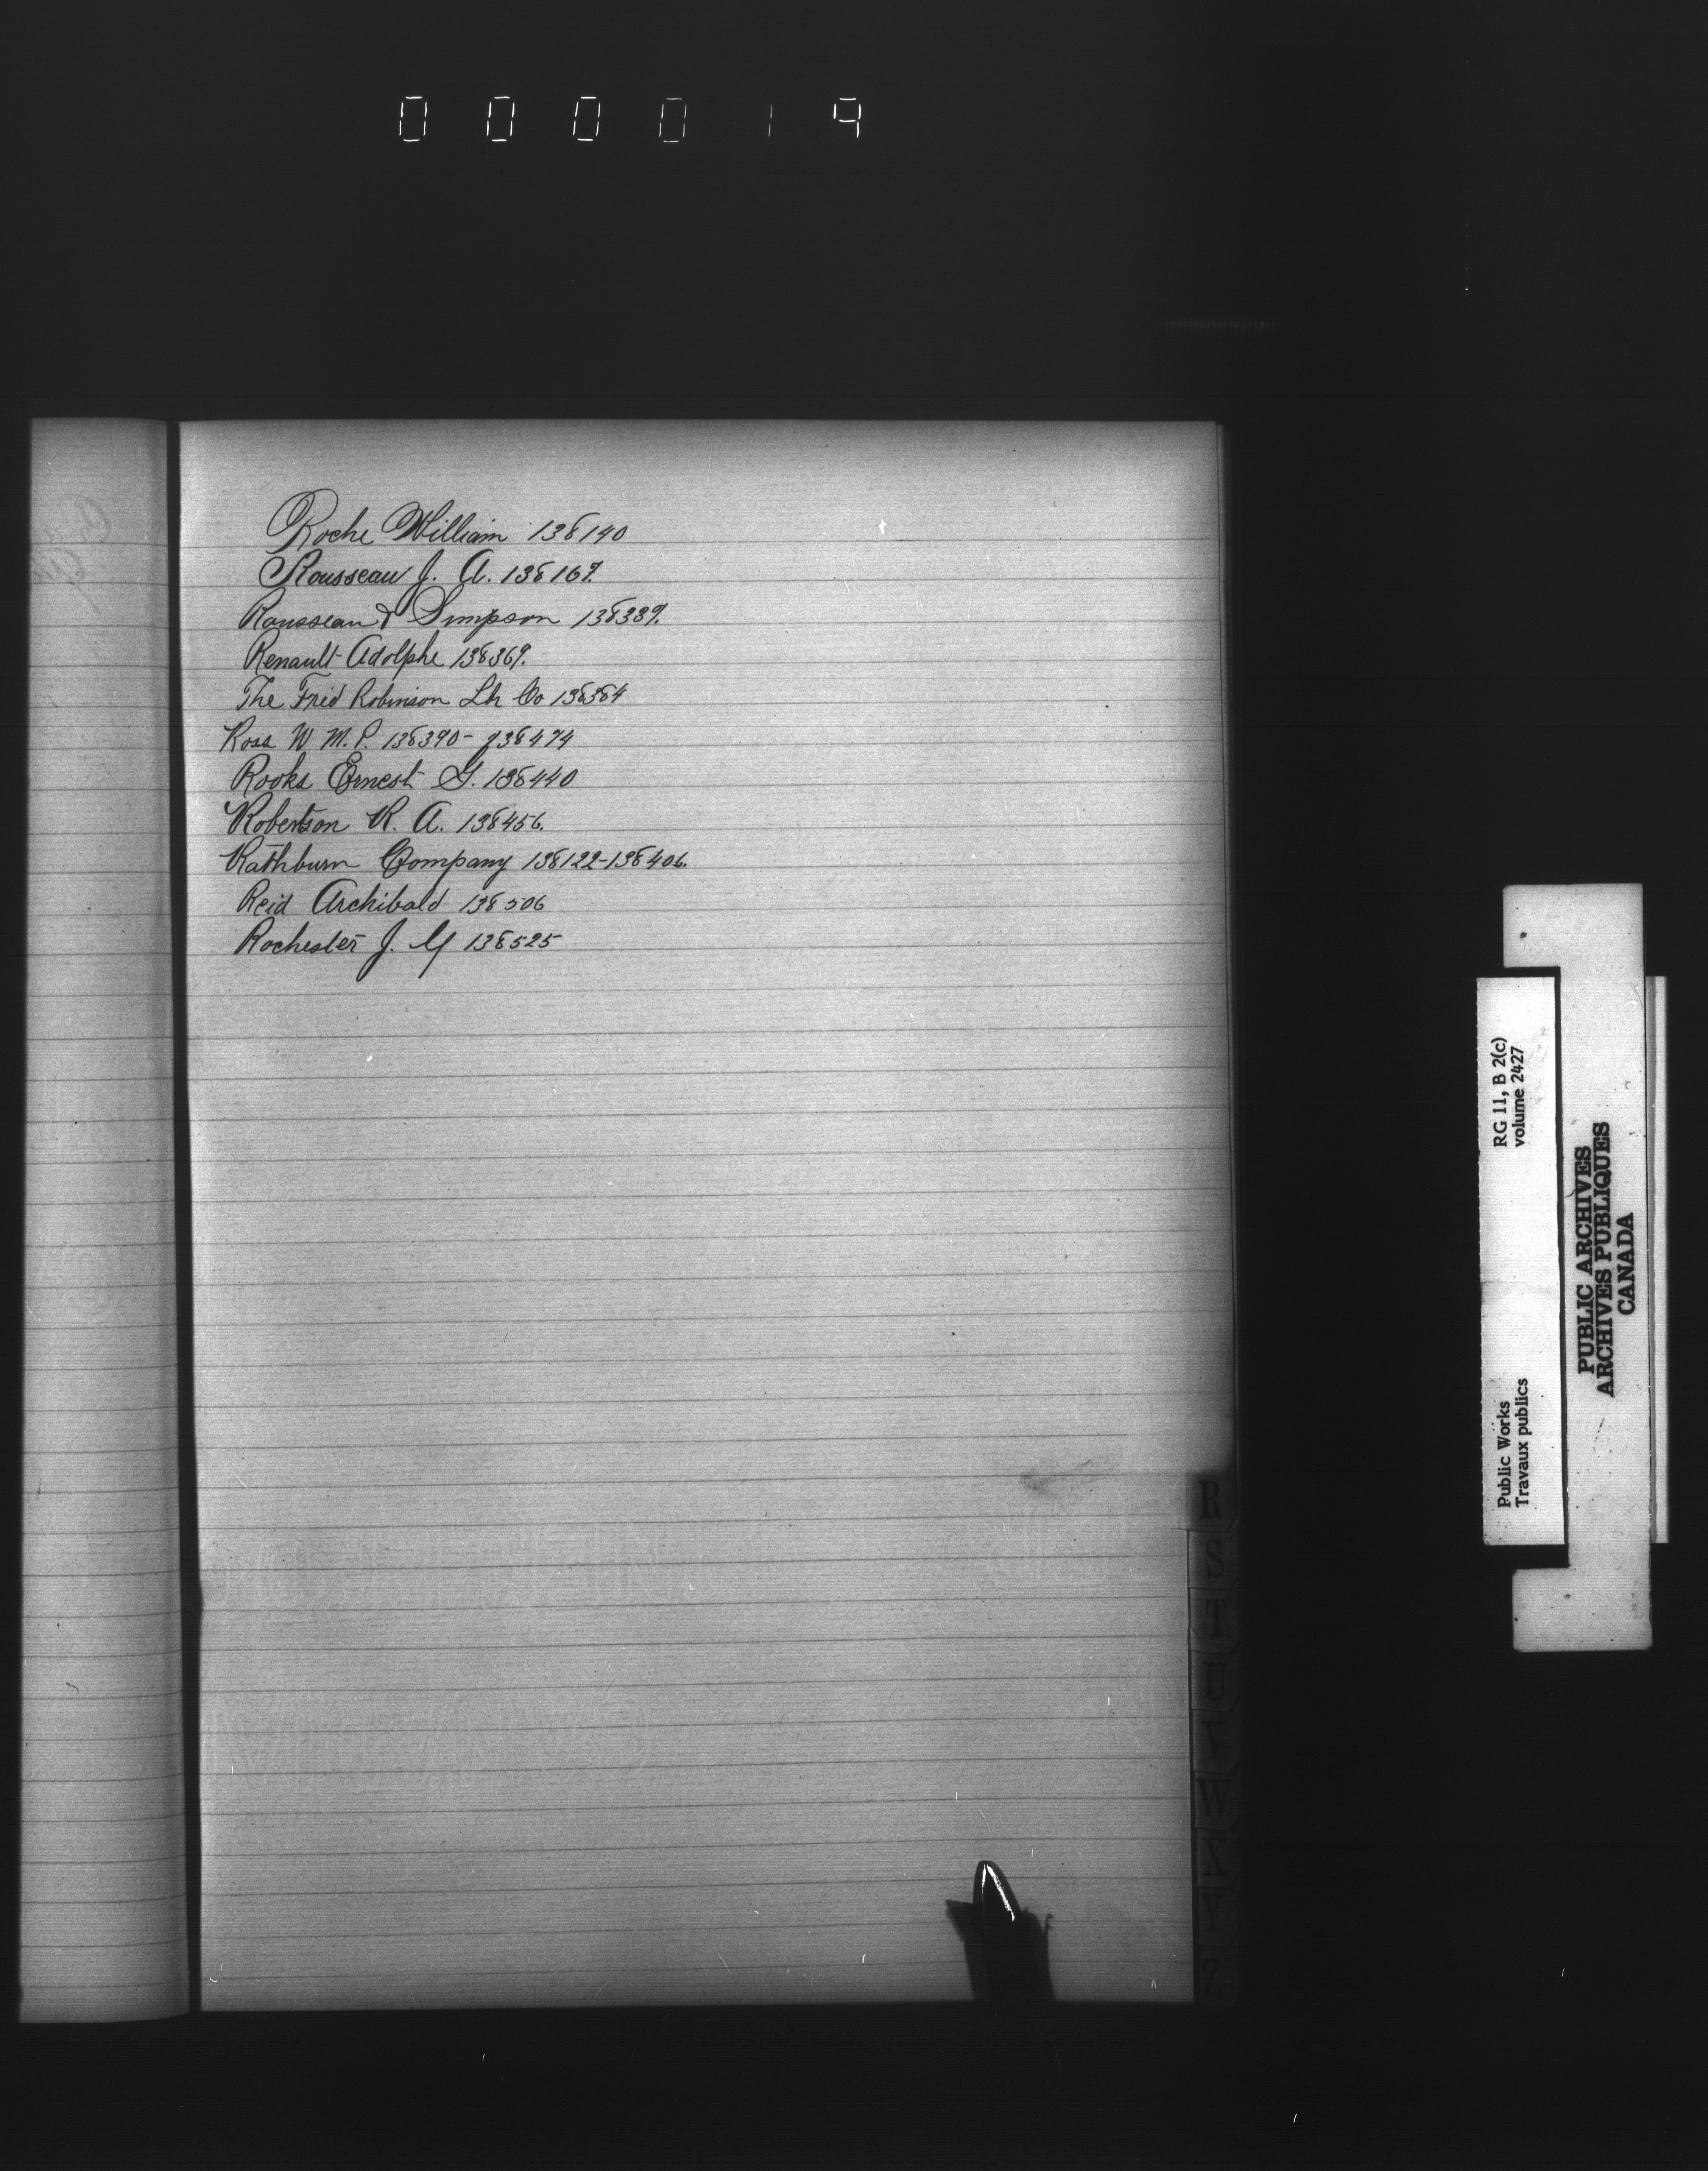 000019
Roche William 138140
Rousseau J. A. 138167.
Rousseau & Simpson 138339.
Renault Adolphe 138369.
The Fred Robinson Lbr Co 138384
Ross W M.P. 138390- 138474
Rooks Ernest G. 138440
Robertson R. A. 138456.
Rathburn Company 138122-138406.
Reid Archibald 138506
Rochester J. Y 138525
R
S
T
U
V
W
X
Y
Z
RG 11, B 2(c)
volume 2427
Public Works
Travaux publics
PUBLIC ARCHIVES
ARCHIVES PUBLIQUES
CANADA